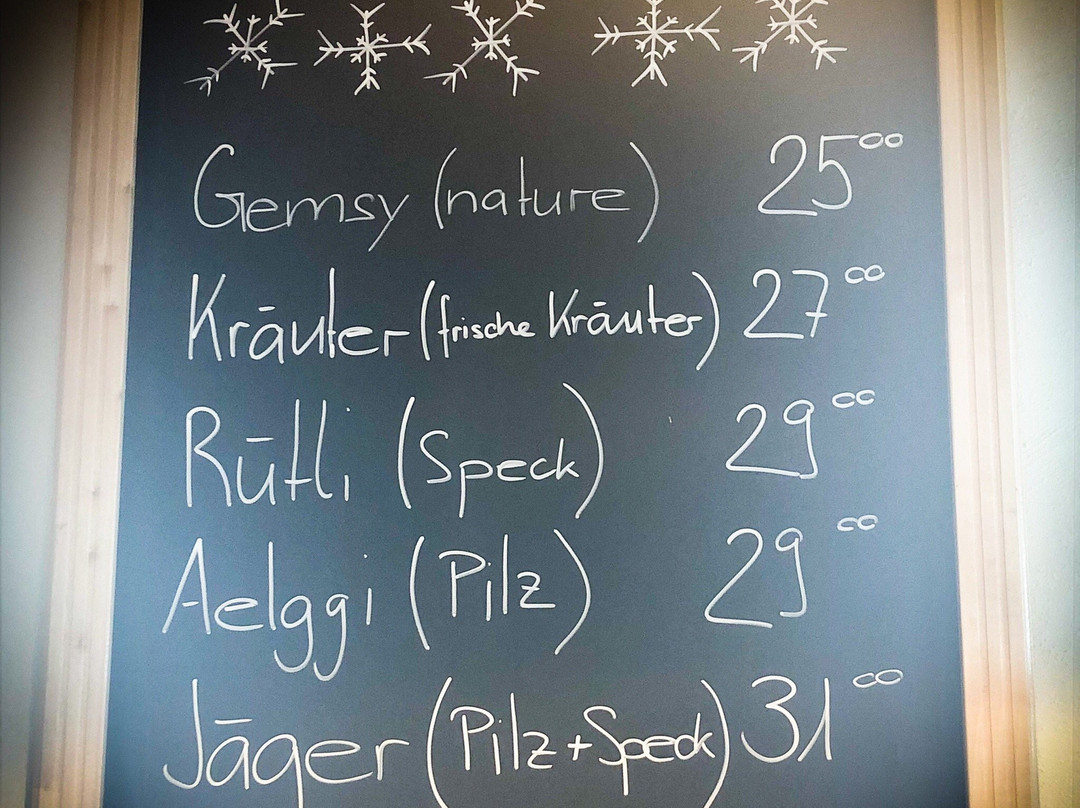 Gemsy (nature) 25⁰⁰
Kräuter (frische Kräuter) 27⁰⁰
Rütli (Speck) 29⁰⁰
Aelggi (Pilz) 29⁰⁰
Jäger (Pilz+Speck) 31⁰⁰